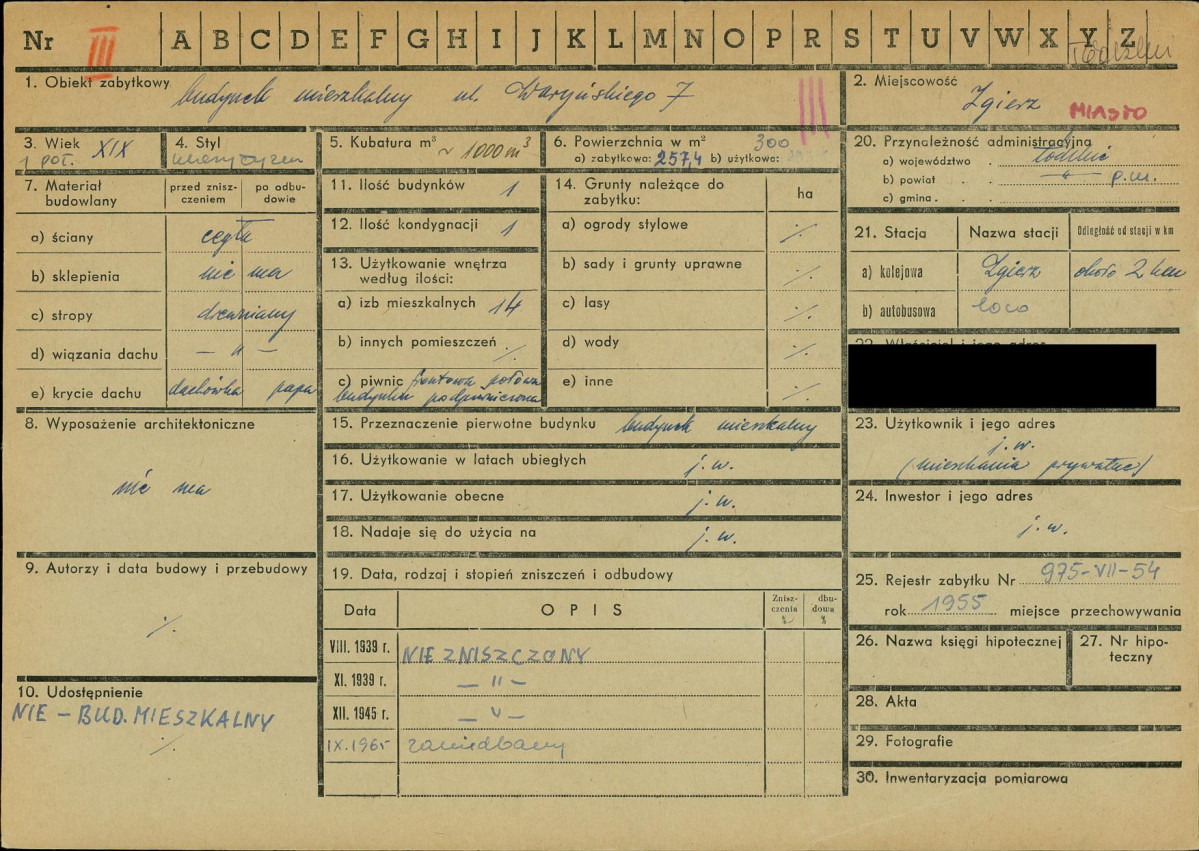 Nr III A B C D E F G H I J K L M N O P R S T U V W X Y Z
1. Obiekt zabytkowy budynek mieszkalny ul. Waryńskiego 7 III
2. Miejscowość
Zgierz MIASTO
3. Wiek
1 poł. XIX
4. Styl
5. Kubatura m³ ~ 1000 m³
6. Powierzchnia w m² 300
a) zabytkowa: 257,4 b) użytkowa:
7. Materiał budowlany
przed zniszczeniem
po odbudowie
a) ściany cegła
b) sklepienia nie ma
c) stropy drewniany
d) wiązania dachu — " —
e) krycie dachu dachówka papa
8. Wyposażenie architektoniczne
nie ma
9. Autorzy i data budowy i przebudowy
·/.
10. Udostępnienie
NIE – BUD. MIESZKALNY
·/.
11. Ilość budynków 1
12. Ilość kondygnacji 1
13. Użytkowanie wnętrza
według ilości:
a) izb mieszkalnych 14
b) innych pomieszczeń ·/.
c) piwnic frontowa połowa
budynku podpiwniczona
14. Grunty należące do
zabytku:
ha
a) ogrody stylowe ·/.
b) sady i grunty uprawne ·/.
c) lasy ·/.
d) wody ·/.
e) inne ·/.
15. Przeznaczenie pierwotne budynku budynek mieszkalny
16. Użytkowanie w latach ubiegłych j. w.
17. Użytkowanie obecne j. w.
18. Nadaje się do użycia na j. w.
19. Data, rodzaj i stopień zniszczeń i odbudowy
Data OPIS Zniszczenia % dbudowa %
VIII. 1939 r. NIE ZNISZCZONY
XI. 1939 r. — " —
XII. 1945 r. — " —
IX. 1965 zaniedbany
20. Przynależność administracyjna
a) województwo . łódzkie
b) powiat . . — " — p.m.
c) gmina . .
21. Stacja Nazwa stacji Odległość od stacji w km
a) kolejowa Zgierz około 2 km
b) autobusowa loco
23. Użytkownik i jego adres
j. w.
(mieszkania prywatne)
24. Inwestor i jego adres
j. w.
25. Rejestr zabytku Nr 975-VII-54
rok 1955 miejsce przechowywania
26. Nazwa księgi hipotecznej
27. Nr hipoteczny
28. Akta
29. Fotografie
30. Inwentaryzacja pomiarowa